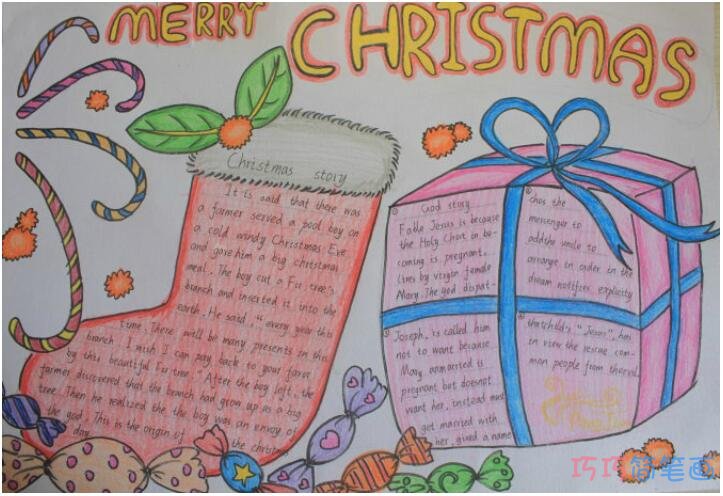 MERRY CHRISTMAS
Christmas story
It is said that there was
a farmer served a pool boy on
a cold windy Christmas Eve
and gave him a big christmas
meal. The boy cut a Fir tree's
branch and inserted it into the
earth. He said, "every year this
time. There will be many presents in this
branch. I wish I can pay back to your favor
by this beautiful Fir tree." After the boy left, the
farmer discovered that the branch had grow up as a big
tree. Then he realized the the boy was an envoy of
the god. This is the origin of the christmas
day.
① God story
Fable Jesus is because
the Holy Ghost on be-
coming is pregnant.
lines by virgin female
Mary. The god dispat-
② ches the
messenger to
addthe smile to
arrange in order in the
dream notifies explicitly
③ Joseph, is called him
not to want because
Mary unmarried is
pregnant but doesnot
want her, instead must
get married with
her, gived a name
④ thatchild's "Jesus", has
in view the rescue com-
mon people from thereof
巧巧简笔画